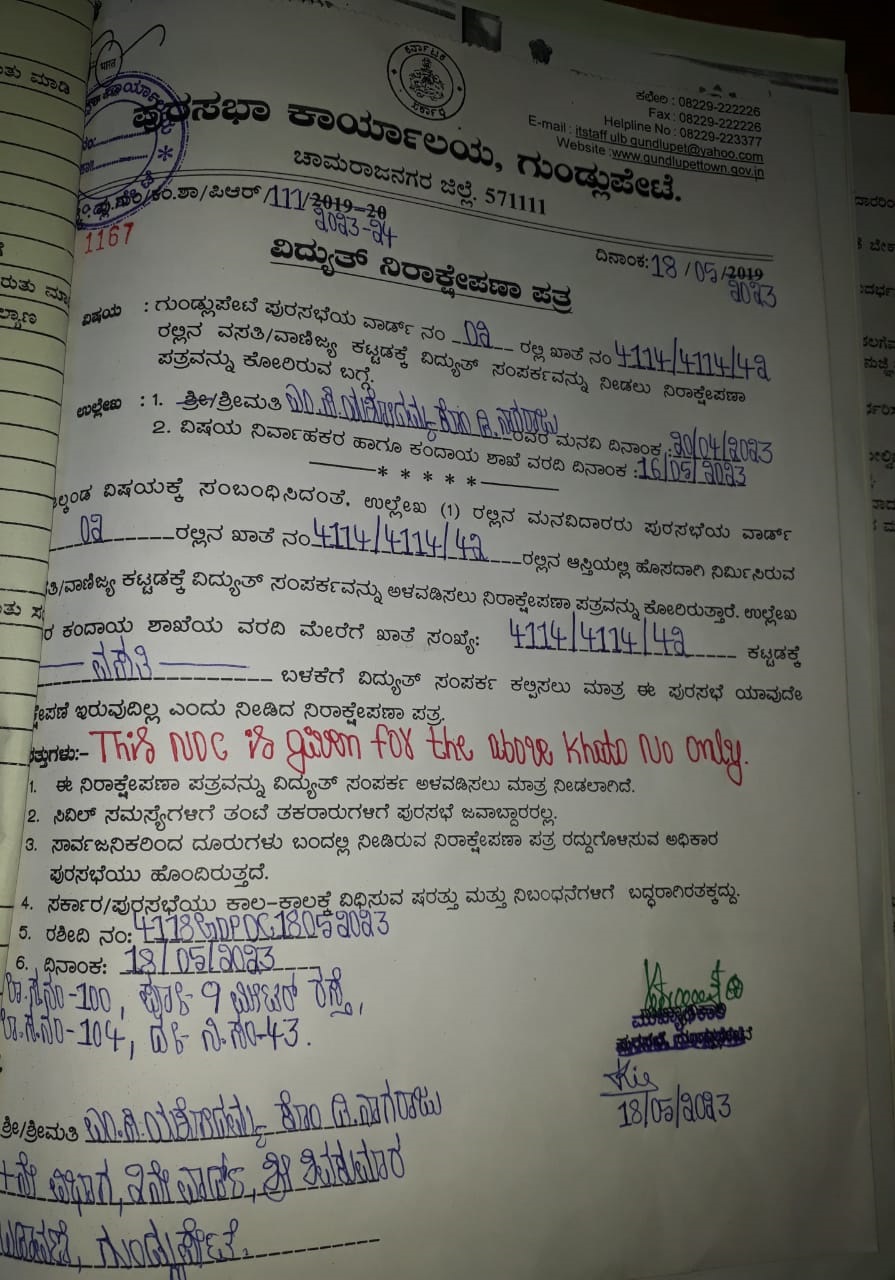 ಕಛೇರಿ : 08229-222226
Fax : 08229-222226
Helpline No : 08229-223377
E-mail : itstaff ulb gundlupet@yahoo.com
Website :www.gundlupettown.gov.in
ಪುರಸಭಾ ಕಾರ್ಯಾಲಯ, ಗುಂಡ್ಲುಪೇಟೆ.
ಚಾಮರಾಜನಗರ ಜಿಲ್ಲೆ. 571111
/ಕಂ.ಶಾ/ಪಿಆರ್/111/2019-20
2023-24
1167
ದಿನಾಂಕ:18/05/2019
2023
ವಿದ್ಯುತ್ ನಿರಾಕ್ಷೇಪಣಾ ಪತ್ರ
ವಿಷಯ : ಗುಂಡ್ಲುಪೇಟೆ ಪುರಸಭೆಯ ವಾರ್ಡ್ ನಂ 02 ರಲ್ಲಿ ಖಾತೆ ನಂ 4114/4114/42
ರಲ್ಲಿನ ವಸತಿ/ವಾಣಿಜ್ಯ ಕಟ್ಟಡಕ್ಕೆ ವಿದ್ಯುತ್ ಸಂಪರ್ಕವನ್ನು ನೀಡಲು ನಿರಾಕ್ಷೇಪಣಾ
ಪತ್ರವನ್ನು ಕೋರಿರುವ ಬಗ್ಗೆ.
ಉಲ್ಲೇಖ : 1. ಶ್ರೀ/ಶ್ರೀಮತಿ ಎಂ.ಪಿ.ಯಶೋದಮ್ಮ ಕೋಂ ಡಿ.ನಾಗರಾಜು ರವರ ಮನವಿ ದಿನಾಂಕ :20/04/2023
2. ವಿಷಯ ನಿರ್ವಾಹಕರ ಹಾಗೂ ಕಂದಾಯ ಶಾಖೆ ವರದಿ ದಿನಾಂಕ :16/05/2023
*****
ವಿಷಯಕ್ಕೆ ಸಂಬಂಧಿಸಿದಂತೆ. ಉಲ್ಲೇಖ (1) ರಲ್ಲಿನ ಮನವಿದಾರರು ಪುರಸಭೆಯ ವಾರ್ಡ್
02 ರಲ್ಲಿನ ಖಾತೆ ನಂ 4114/4114/42 ರಲ್ಲಿನ ಆಸ್ತಿಯಲ್ಲಿ ಹೊಸದಾಗಿ ನಿರ್ಮಿಸಿರುವ
ತಿ/ವಾಣಿಜ್ಯ ಕಟ್ಟಡಕ್ಕೆ ವಿದ್ಯುತ್ ಸಂಪರ್ಕವನ್ನು ಅಳವಡಿಸಲು ನಿರಾಕ್ಷೇಪಣಾ ಪತ್ರವನ್ನು ಕೋರಿರುತ್ತಾರೆ. ಉಲ್ಲೇಖ
ರ ಕಂದಾಯ ಶಾಖೆಯ ವರದಿ ಮೇರೆಗೆ ಖಾತೆ ಸಂಖ್ಯೆ: 4114/4114/42 ಕಟ್ಟಡಕ್ಕೆ
ವಸತಿ ಬಳಕೆಗೆ ವಿದ್ಯುತ್ ಸಂಪರ್ಕ ಕಲ್ಪಿಸಲು ಮಾತ್ರ ಈ ಪುರಸಭೆ ಯಾವುದೇ
ಕ್ಷೇಪಣೆ ಇರುವುದಿಲ್ಲ ಎಂದು ನೀಡಿದ ನಿರಾಕ್ಷೇಪಣಾ ಪತ್ರ.
ರತ್ತುಗಳು:- This NOC is given for the above Khata No only.
1. ಈ ನಿರಾಕ್ಷೇಪಣಾ ಪತ್ರವನ್ನು ವಿದ್ಯುತ್ ಸಂಪರ್ಕ ಅಳವಡಿಸಲು ಮಾತ್ರ ನೀಡಲಾಗಿದೆ.
2. ಸಿವಿಲ್ ಸಮಸ್ಯೆಗಳಿಗೆ ತಂಟೆ ತಕರಾರುಗಳಿಗೆ ಪುರಸಭೆ ಜವಾಬ್ದಾರರಲ್ಲ.
3. ಸಾರ್ವಜನಿಕರಿಂದ ದೂರುಗಳು ಬಂದಲ್ಲಿ ನೀಡಿರುವ ನಿರಾಕ್ಷೇಪಣಾ ಪತ್ರ ರದ್ದುಗೊಳಿಸುವ ಅಧಿಕಾರ
ಪುರಸಭೆಯು ಹೊಂದಿರುತ್ತದೆ.
4. ಸರ್ಕಾರ/ಪುರಸಭೆಯು ಕಾಲ-ಕಾಲಕ್ಕೆ ವಿಧಿಸುವ ಷರತ್ತು ಮತ್ತು ನಿಬಂಧನೆಗಳಿಗೆ ಬದ್ಧರಾಗಿರತಕ್ಕದ್ದು.
5. ರಶೀದಿ ನಂ: 4118GDPDC18052023
6. ದಿನಾಂಕ: 18/05/2023
-100, ಪೂರ್ವ-9 ಮೀಟರ್ ರಸ್ತೆ,
-104, ದಕ್ಷಿಣ-ನಿ.ಸಂ-43.
ಮುಖ್ಯಾಧಿಕಾರಿ
18/05/2023
ಶ್ರೀ/ಶ್ರೀಮತಿ ಎಂ.ಪಿ.ಯಶೋದಮ್ಮ ಕೋಂ ಡಿ.ನಾಗರಾಜು
ನೇ ವಿಭಾಗ, 2ನೇ ವಾರ್ಡ್, ಶ್ರೀ ಶಿವಕುಮಾರ
ಬಡಾವಣೆ, ಗುಂಡ್ಲುಪೇಟೆ.